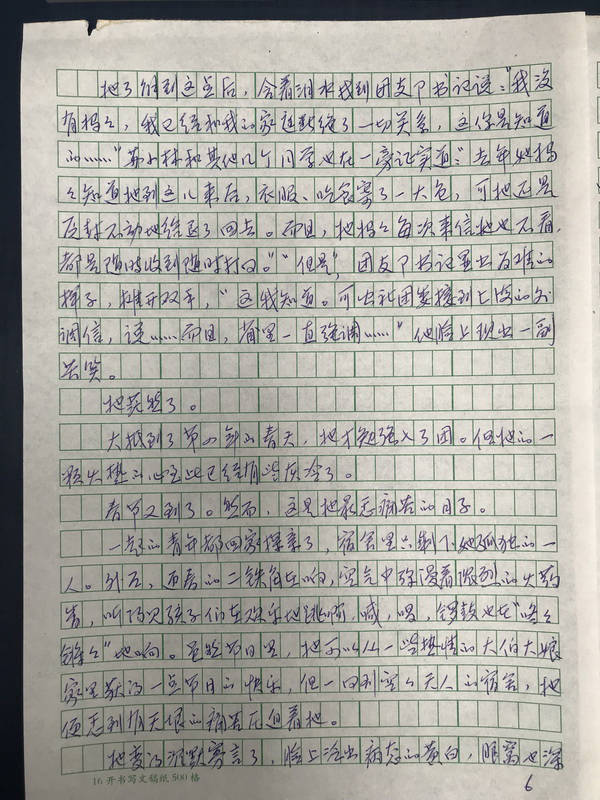 她了解到这点后，含着泪水找到团支部书记说：“我没
有妈妈，我已经和我的家庭断绝了一切关系，这你是知道
的……”苏小林和其他几个同学也在一旁证实道：“去年她妈
妈知道她到这儿来后，衣服、吃食寄了一大包，可她还是
原封不动地给退了回去。而且，她妈妈每次来信她也不看，
都是随时收到随时打回。”“但是”，团支部书记露出为难的
样子，摊开双手，“这我知道。可出社团委接到上海的外
调信，说……而且，省里一直强调……”他脸上现出一副
苦笑。
她茫然了。
大概到了第四年的春天，她才勉强入了团。但她的一
颗火热的心至此已经有些灰冷了。
春节又到了。然而，这是她最感痛苦的日子。
一起的青年都回家探亲了，宿舍里只剩下她孤独的一
人。外面，
二铁角在响，空气中弥漫着浓烈的火药
味，听得见孩子们在欢乐地跳啊，喊，唱，锣鼓也在“咚
锵”地响。虽然节日里，她可以从一些热情的大伯大娘
家里获得一些节日的快乐，但一回到空空无人的宿舍，她
便感到有无限的痛苦在包着她。
她变得沉默寡言了，脸上泛出病态的黄白，眼窝也深
16开书写文稿纸500格
6